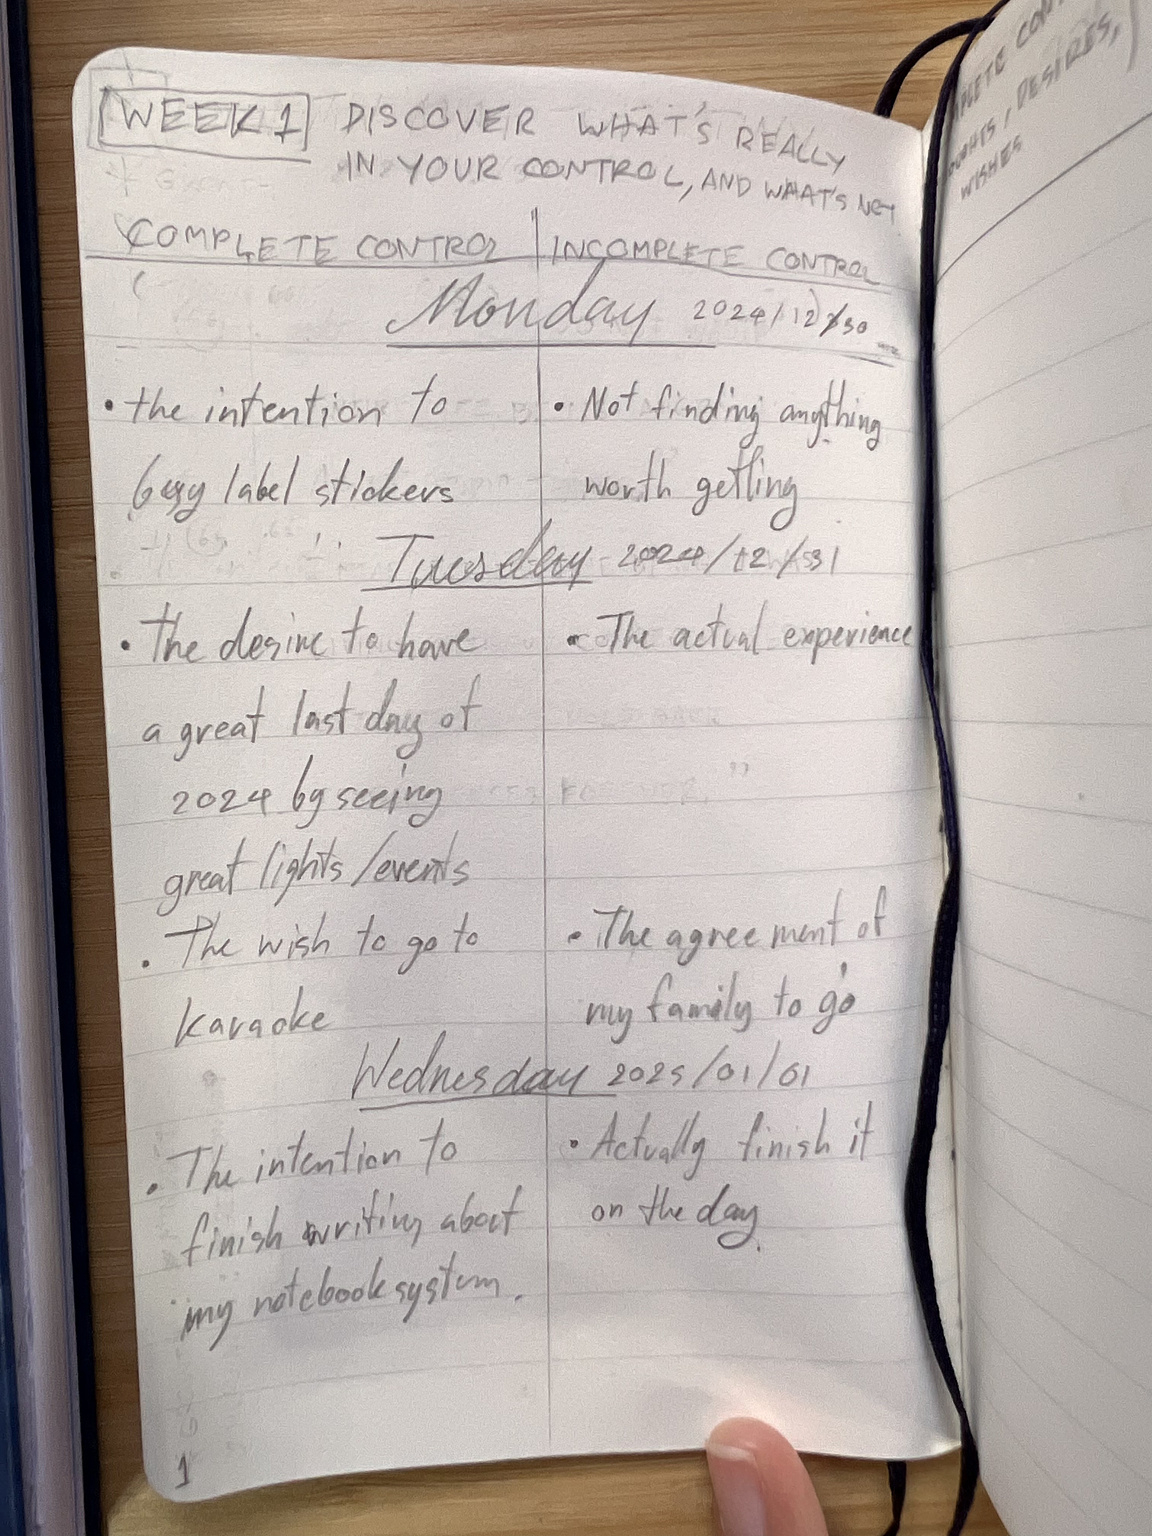 WEEK 1 DISCOVER WHAT'S REALLY
IN YOUR CONTROL, AND WHAT'S NOT
COMPLETE CONTROL | INCOMPLETE CONTROL
Monday 2024/12/30
• the intention to
buy label stickers
• Not finding anything
worth getting
Tuesday 2024/12/31
• The desire to have
a great last day of
2024 by seeing
great lights/events
• The actual experience
• The wish to go to
karaoke
• The agreement of
my family to go
Wednesday 2025/01/01
• The intention to
finish writing about
my notebook system.
• Actually finish it
on the day.
1
DESIRES,
WISHES